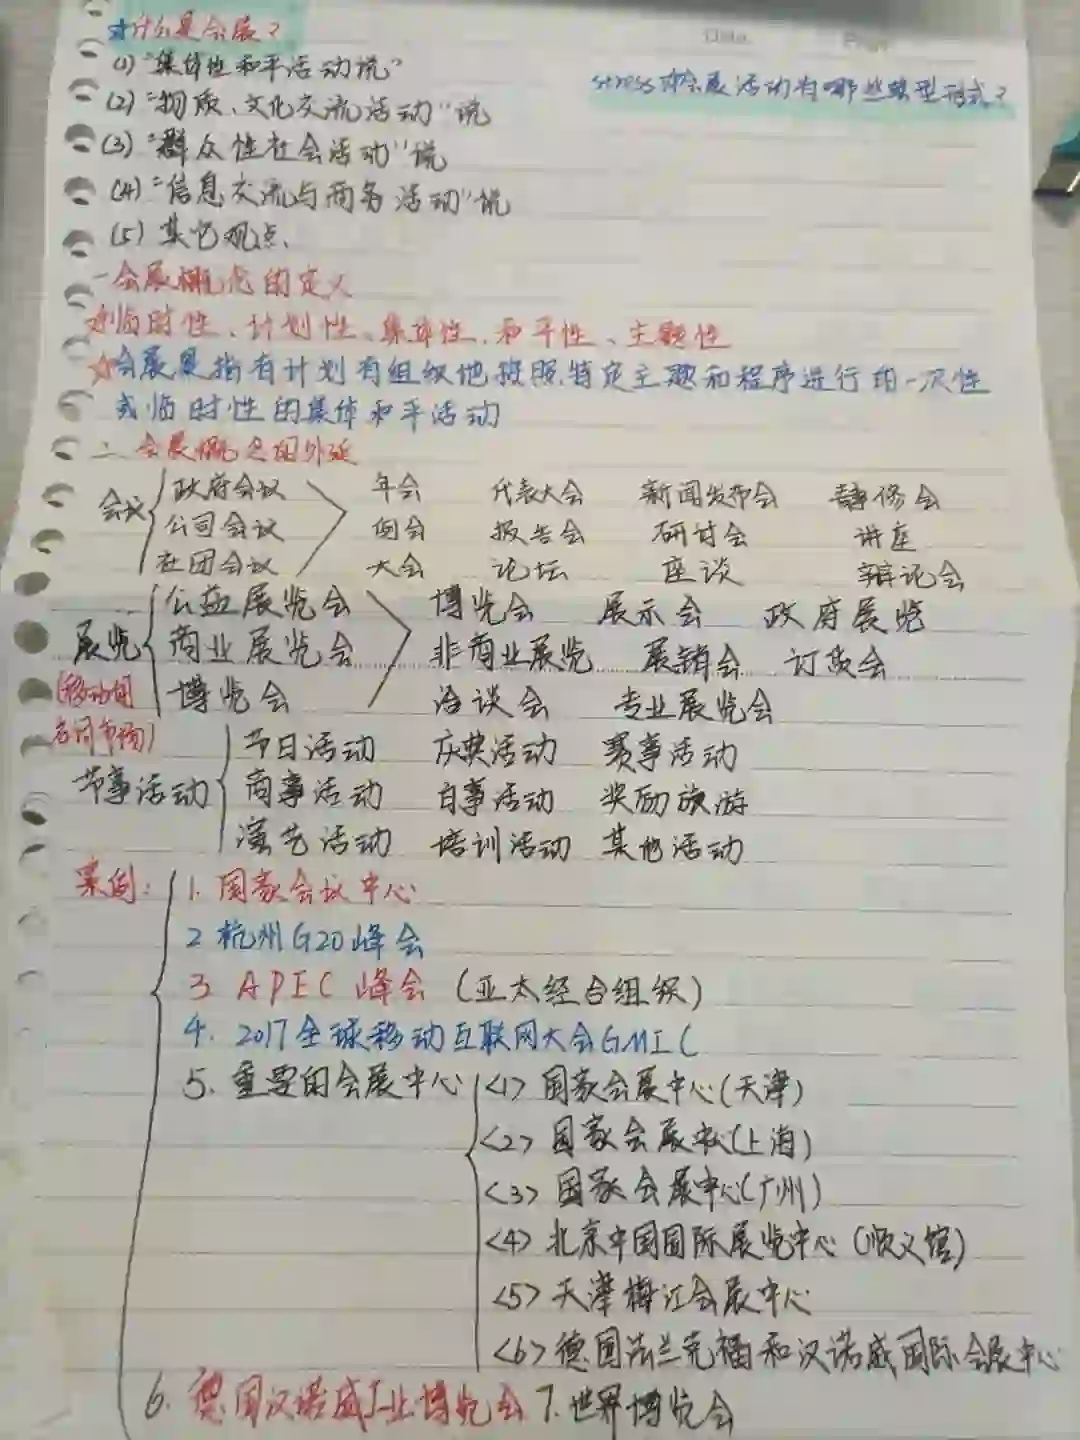 ☆什么是会展?
Date
(1)"集体性和平活动说"
stress：会展活动有哪些类型形式?
(2)"物质、文化交流活动"说
(3)"群众性社会活动"说
(4)"信息交流与商务活动"说
(5)其它观点、
一会展概念的定义
临时性、计划性、集体性、和平性、主题性
☆会展是指有计划有组织地按照特定主题和程序进行的一次性
或临时性的集体和平活动
二、会展概念的外延
会议 政府会议 年会 代表大会 新闻发布会 专修会
公司会议 例会 报告会 研讨会 讲座
社团会议 大会 论坛 座谈 辩论会
公益展览会 博览会 展示会 政府展览
展览 商业展览会 非商业展览 展销会 订货会
(移动的 博览会 洽谈会 专业展览会
名词市场)
节日活动 庆典活动 赛事活动
节事活动 商事活动 白事活动 奖励旅游
演艺活动 培训活动 其他活动
案例: 1.国家会议中心
2 杭州G20峰会
3 APEC峰会(亚太经合组织)
4. 2017全球移动互联网大会GMIC
5. 重要的会展中心 <1>国家会展中心(天津)
<2>国家会展中心(上海)
<3>国家会展中心(广州)
<4>北京中国国际展览中心(顺义馆)
<5>天津梅江会展中心
<6>德国法兰克福和汉诺威国际会展中心
6. 德国汉诺威工业博览会 7.世界博览会